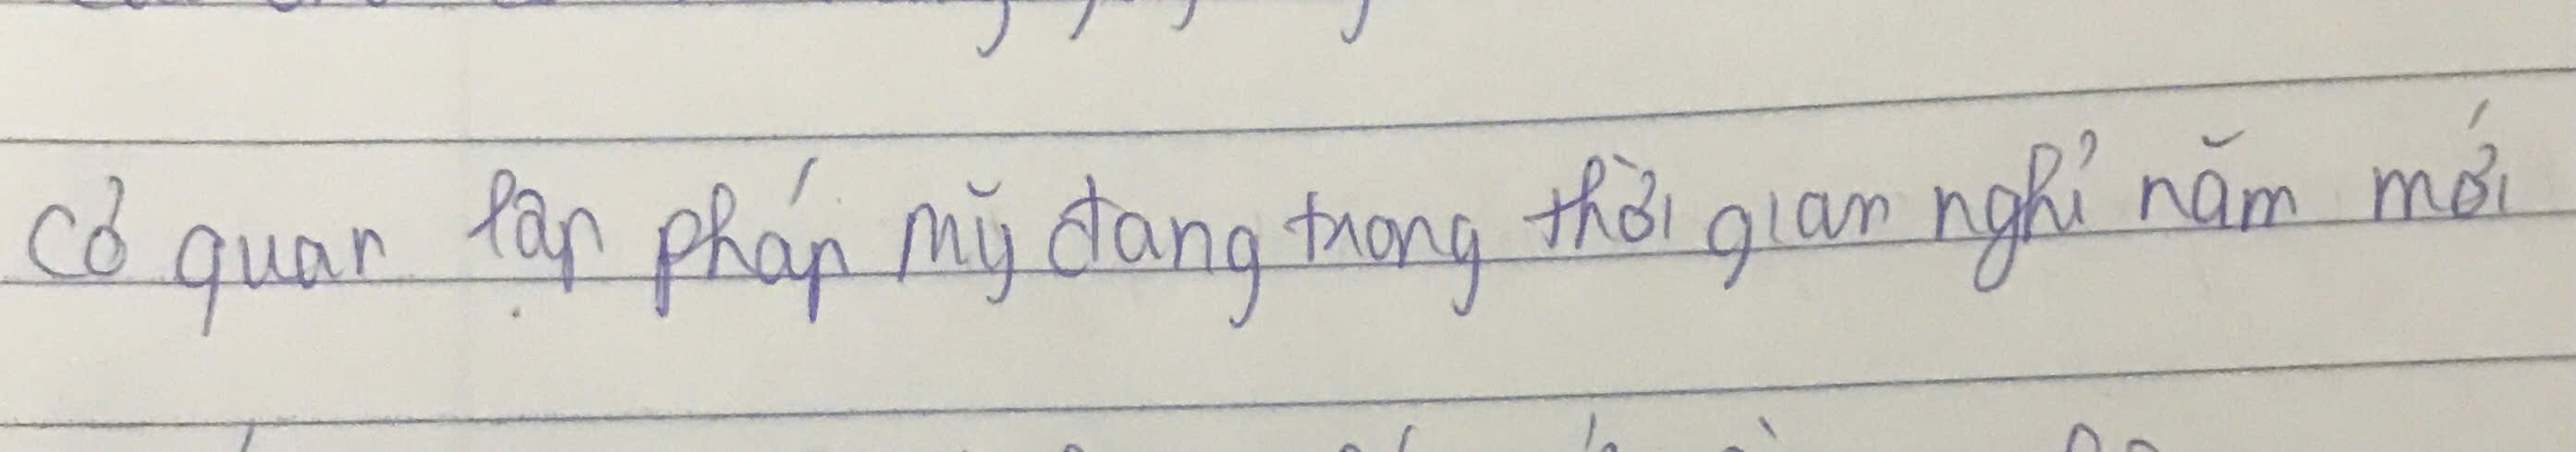 Cơ quan lập pháp Mỹ đang trong thời gian nghỉ năm mới